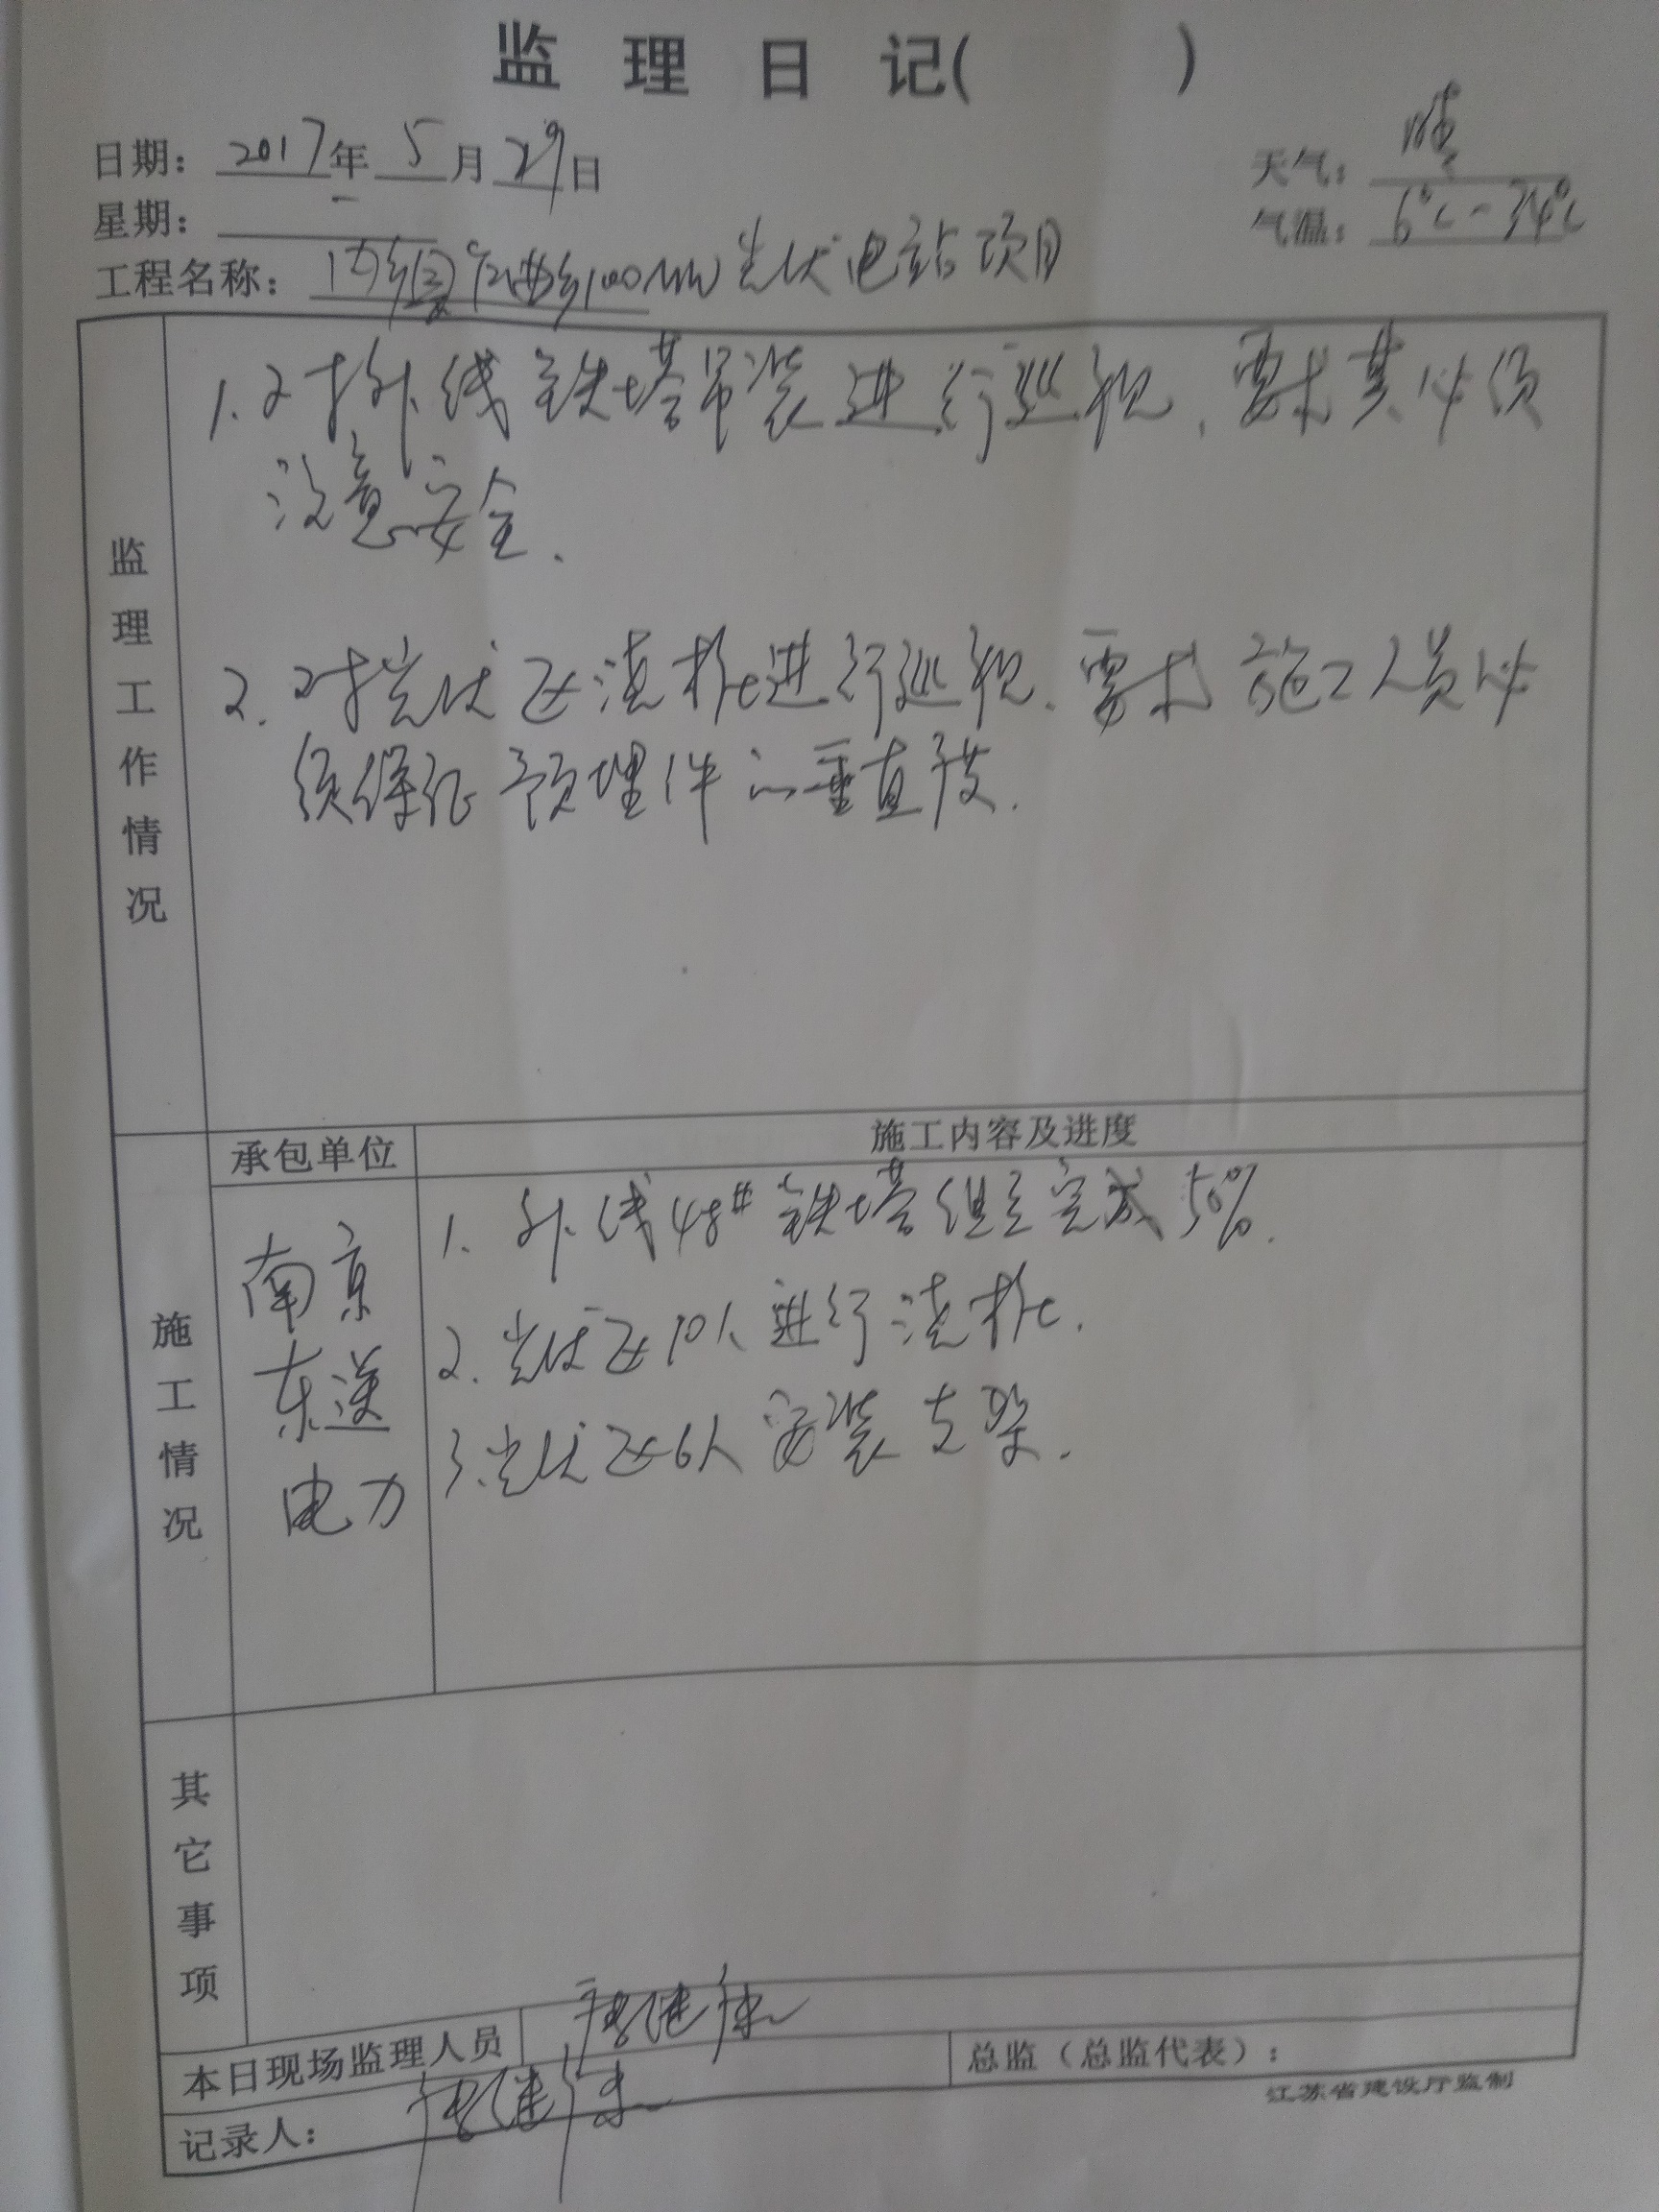 监理日记( )
日期：2017年5月29日
天气：晴
星期：一
气温：6℃-34℃
工程名称：100MW光伏电站项目
监理工作情况
1.对外线铁塔吊装进行巡视，要求其必须
注意安全.
2.对光伏区浇桩进行巡视.要求施工人员必
须保证预埋件的垂直度.
施工情况
承包单位
施工内容及进度
南京
东送
电力
1.外线48#铁塔组立完成50%.
2.光伏区10人进行浇桩.
3.光伏区6人安装支架.
其它事项
本日现场监理人员
总监（总监代表）：
记录人：
江苏省建设厅监制